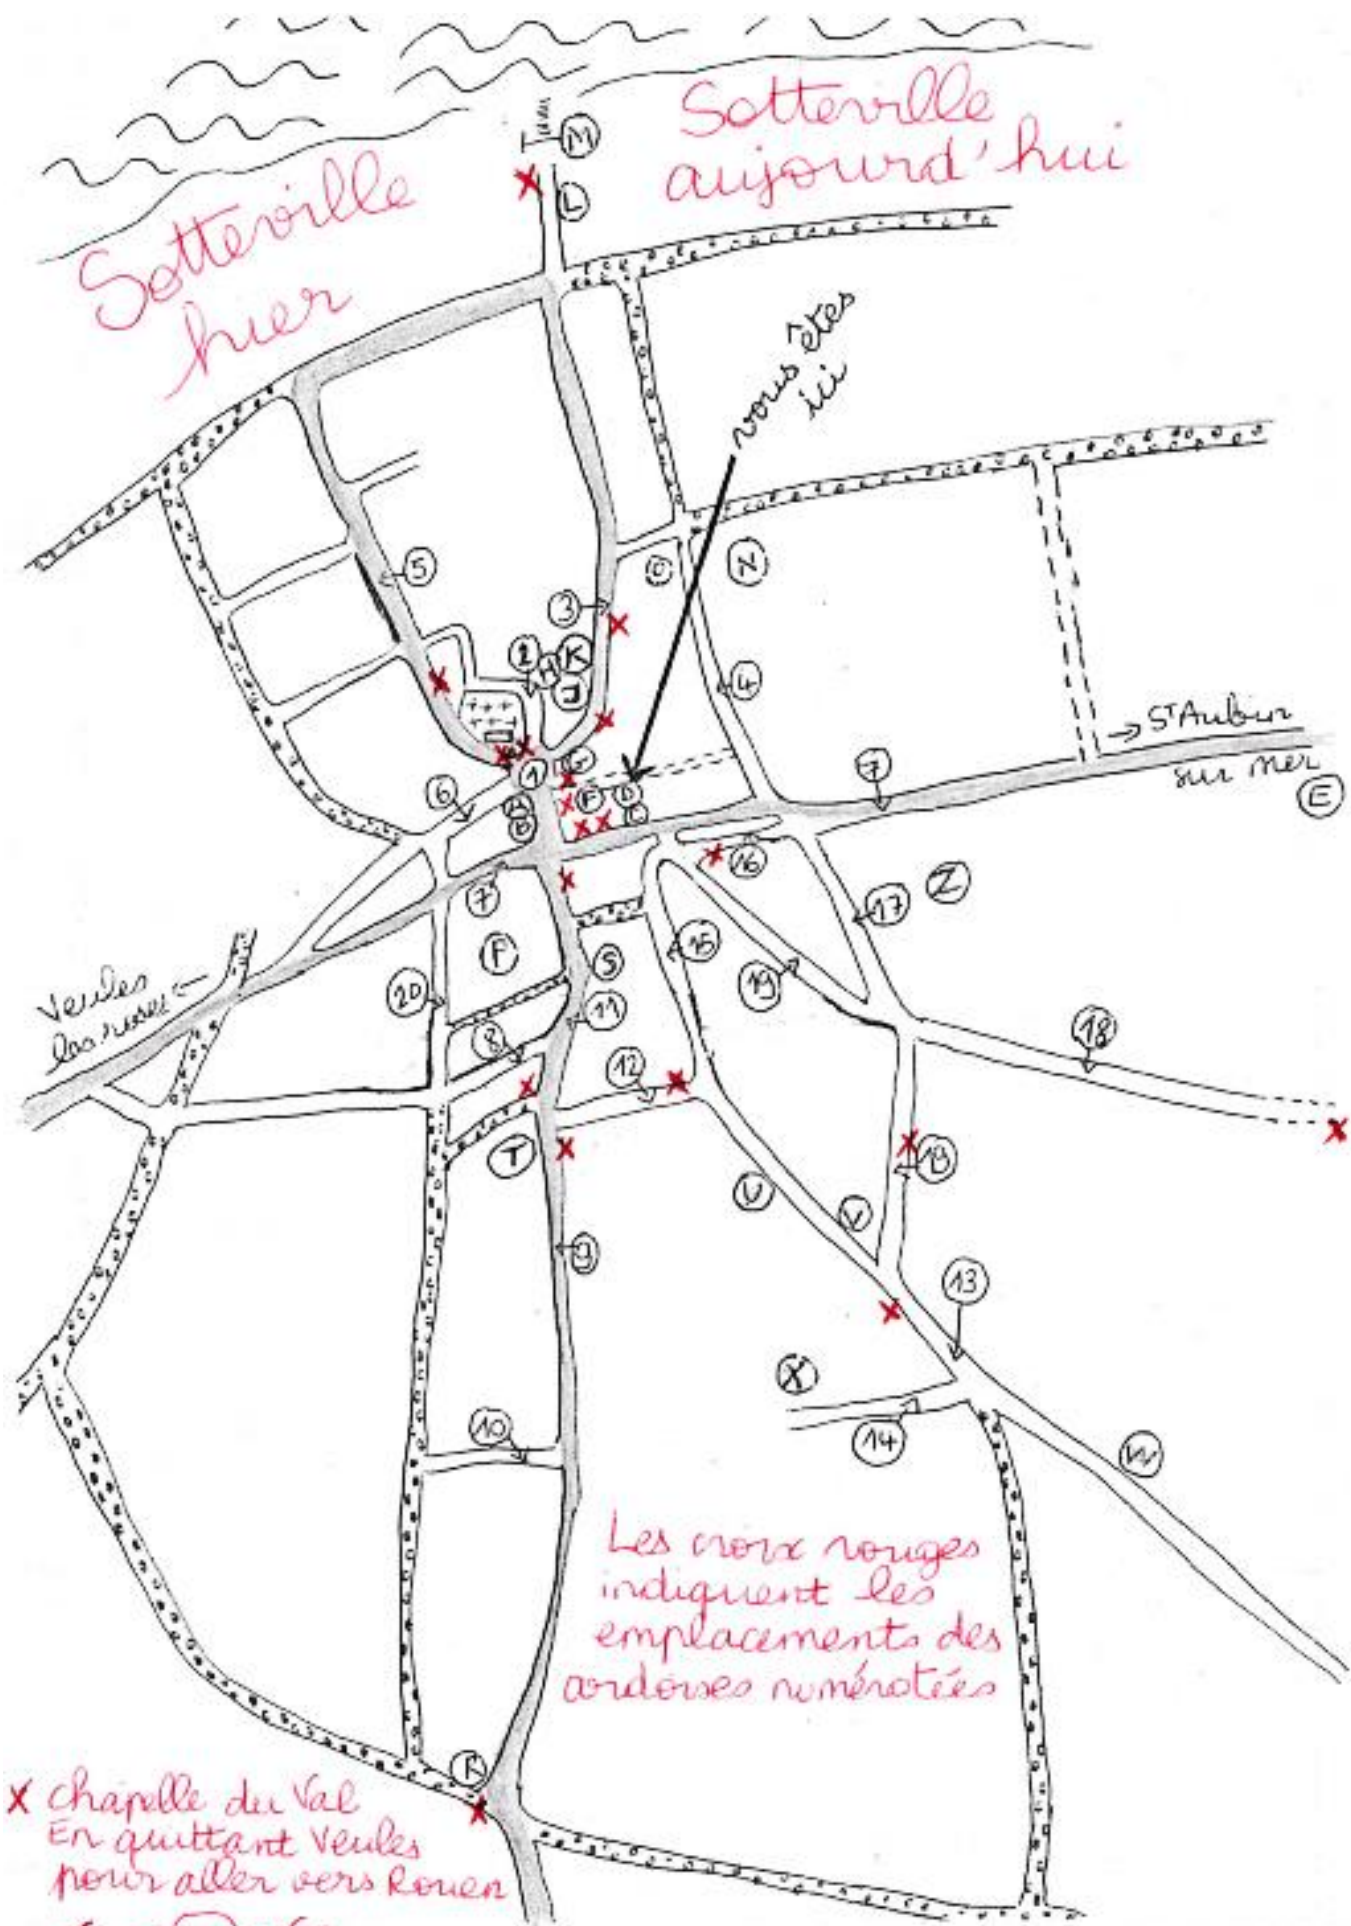 Sotteville
hier
Sotteville
aujourd'hui
M
L
vous êtes
ici
5
3
2
H
K
J
O
N
4
1
G
6
A
B
F
D
C
7
→ St Aubin
sur mer
E
7
16
17
Z
F
S
15
19
20
11
8
12
18
Veules ←
les roses
T
U
V
19
9
13
X
14
W
10
Les croix rouges
indiquent les
emplacements des
ardoises numérotées
R
X chapelle du Val
En quittant Veules
pour aller vers Rouen